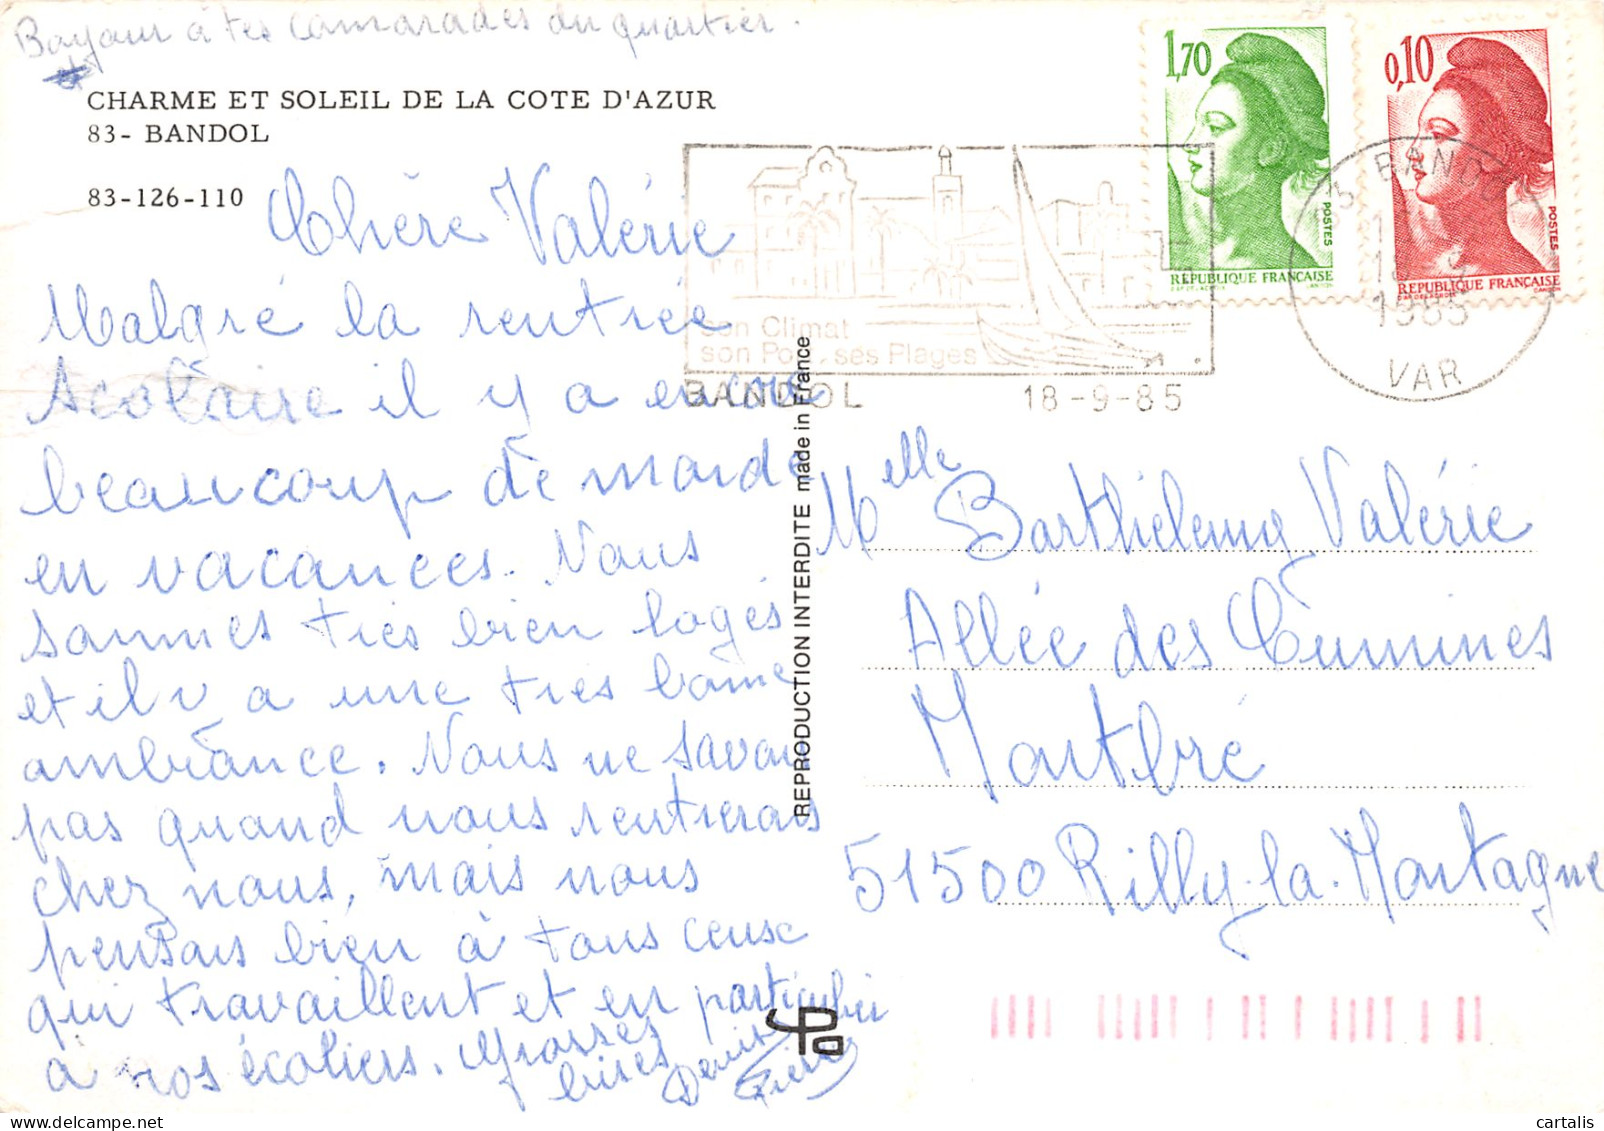 Bonjour à tes camarades du quartier.
CHARME ET SOLEIL DE LA COTE D'AZUR
83- BANDOL
83-126-110
Chère Valérie
Malgré la rentrée
scolaire il y a encore
beaucoup de monde
en vacances. Nous
sommes très bien logés
et il y a une très bonne
ambiance. Nous ne savons
pas quand nous rentrerons
chez nous, mais nous
pensons bien à tous ceux
qui travaillent et en particulier
à nos écoliers. Grosses
bises
1,70
POSTES
RÉPUBLIQUE FRANÇAISE
0,10
POSTES
RÉPUBLIQUE FRANÇAISE
son Climat
son Port, ses Plages
BANDOL 18-9-85
83 BANDOL
1985
VAR
REPRODUCTION INTERDITE made in France
Melle Barthelemy Valérie
Allée des Cumines
Montbré
51500 Rilly-la-Montagne
Pa
cartalis